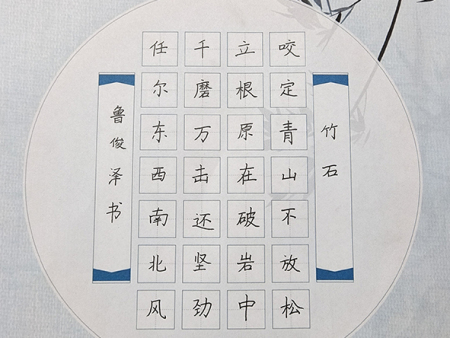 竹石
咬定青山不放松
立根原在破岩中
千磨万击还坚劲
任尔东西南北风
鲁俊泽书